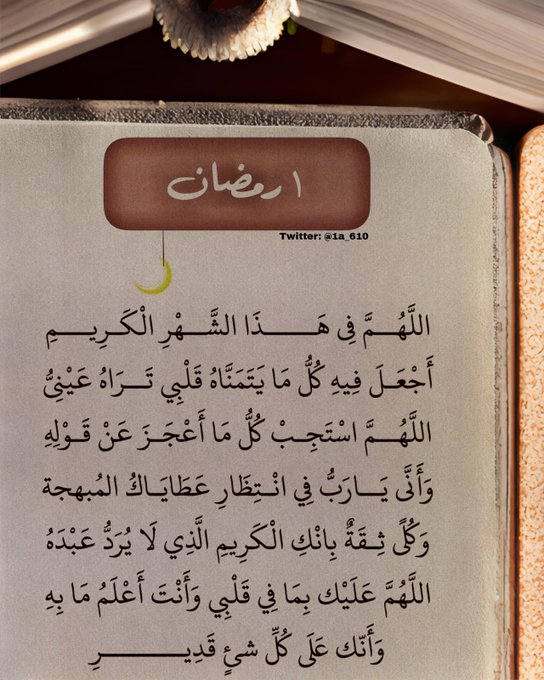 ١ رمضان
Twitter: @1a_610
اللَّهُـــمَّ فِى هَــــــذَا الشَّـــهْرِ الْكَـرِيــــمِ
أَجْعَـلَ فِيهِ كُلُّ مَا يَتَمَنَّاهُ قَلْبِي تَــرَاهُ عَيْنِيُّ
اللَّهُـــمَّ اسْتَجِـبْ كُلُّ مَا أَعْجَـزَ عَنْ قَـوْلِهِ
وَأَنَّى يَـــارَبُّ فِي انْـتِظَارِ عَطَايَـاكُ المُبهجة
وَكُلَّى ثِـقَةٌ بِانْكِ الْكَرِيمِ الَّذِي لَا يُرَدُّ عَبْدَهُ
اللَّهُمَّ عَلَيْك بِمَا فِي قَلْبِي وَأَنْتَ أَعْلَمُ مَا بِهِ
وَأَنّك عَلَى كُلِّ شئٍ قَدِيـــــــــــرِ